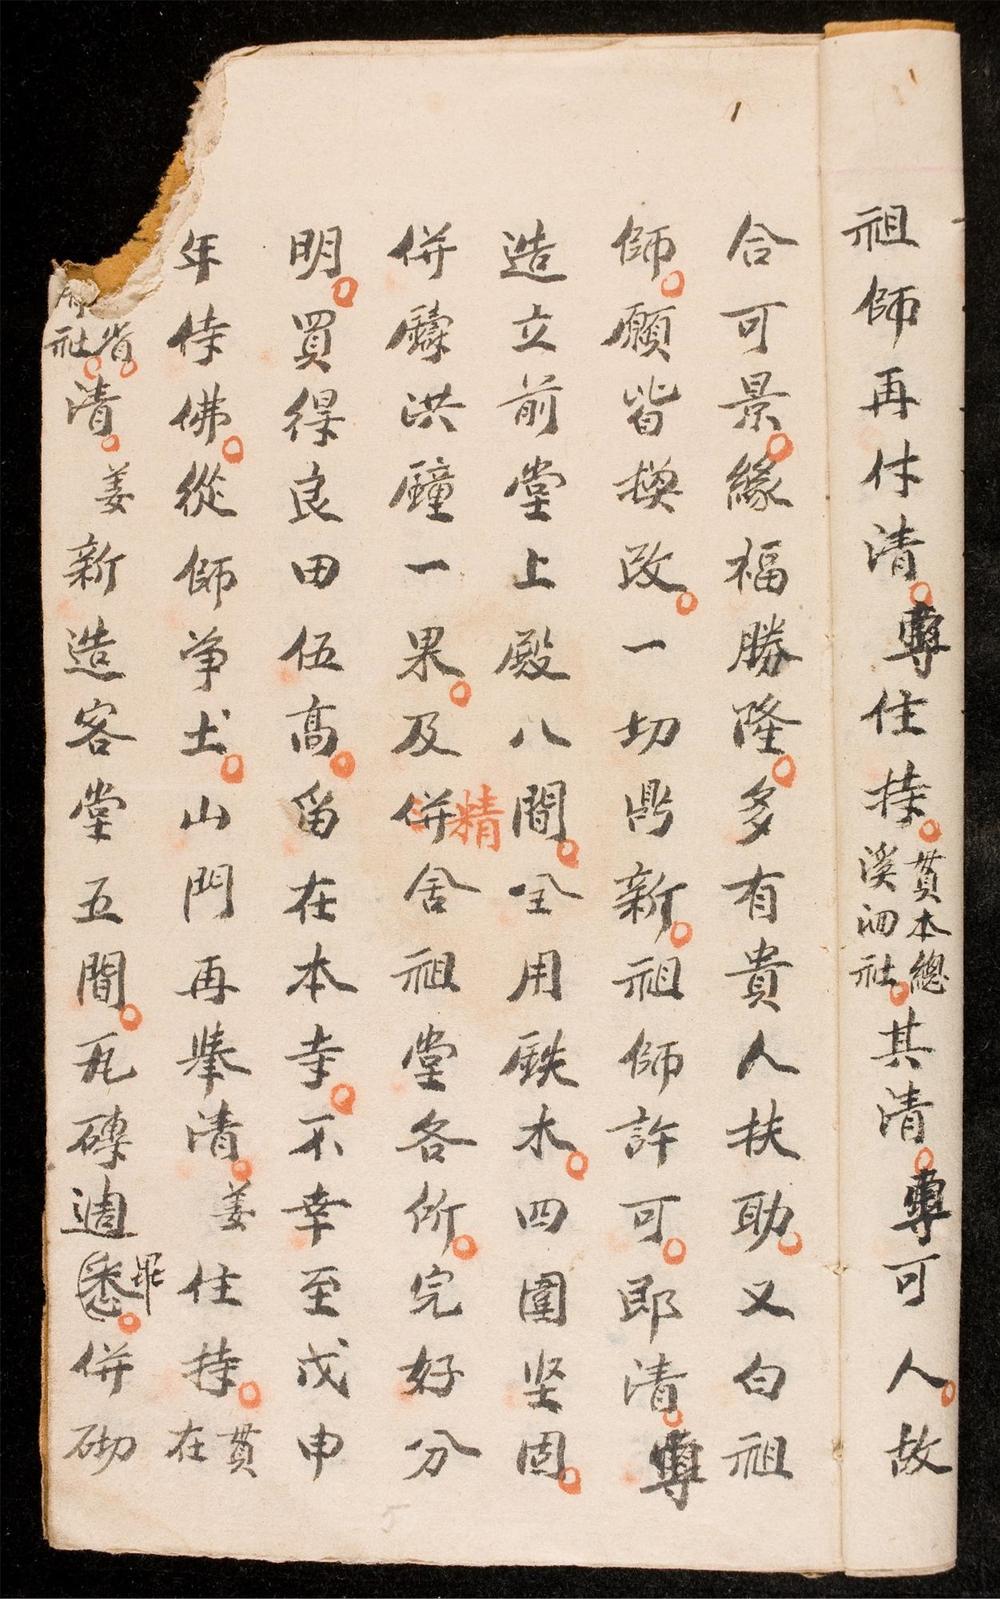 祖師再付清尊住持貫本總溪泗社其清尊可人故
合可景緣福勝隆多有貴人扶助又白祖
師願皆換改一切鼎新祖師許可即清尊
造立前堂上殿八間全用鉄木四圍坚固
併鑄洪鐘一果及併精舍祖堂各所完好分
明買得良田伍高畄在本寺不幸至戊申
年侍佛從師争土山門再舉清姜住持貫在
社清姜新造客堂五間瓦磚週悉畢併砌